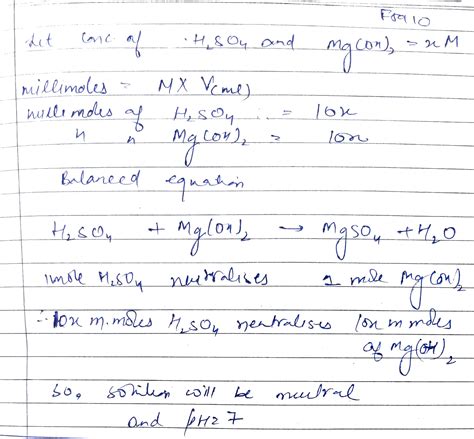 Let conc of H₂SO₄ and Mg(OH)₂ = x M
millimoles = M X V(ml)
millimoles of H₂SO₄ = 10x
" " Mg(OH)₂ = 10x
Balanced equation
H₂SO₄ + Mg(OH)₂ → MgSO₄ + H₂O
1 mole H₂SO₄ neutralises 1 mole Mg(OH)₂
∴ 10x m.moles H₂SO₄ neutralises 10x m moles
of Mg(OH)₂
So, solution will be neutral
and pH = 7